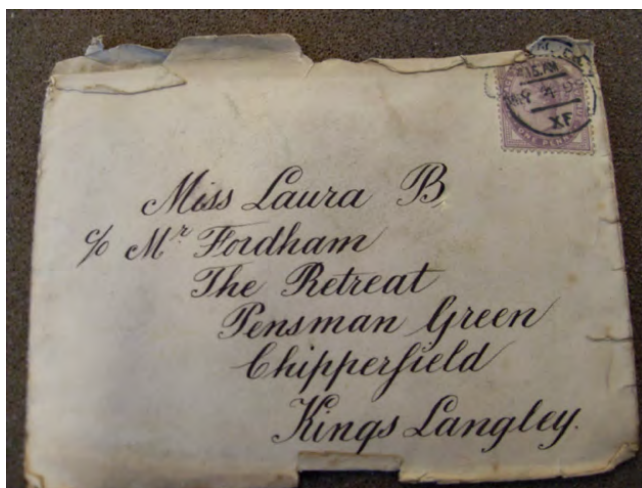 Miss Laura B
c/o Mr Fordham
The Retreat
Pensman Green
Chipperfield
Kings Langley.
XF
ONE PENNY